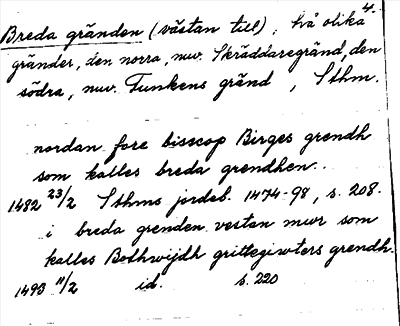 4.
Breda gränden (västan till), två olika
gränder, den norra, nuv. Skräddaregränd, den
södra, nuv. Funkens gränd, Sthm.
nordan fore bisscop Birges grendh
som kalles breda grendhen..
1482 23/2 Sthms jordeb. 1474-98, s. 208.
i breda grenden vestan mwr som
kalles Bothwijdh grittegiwters grendh.
1493 11/2 id. s. 220